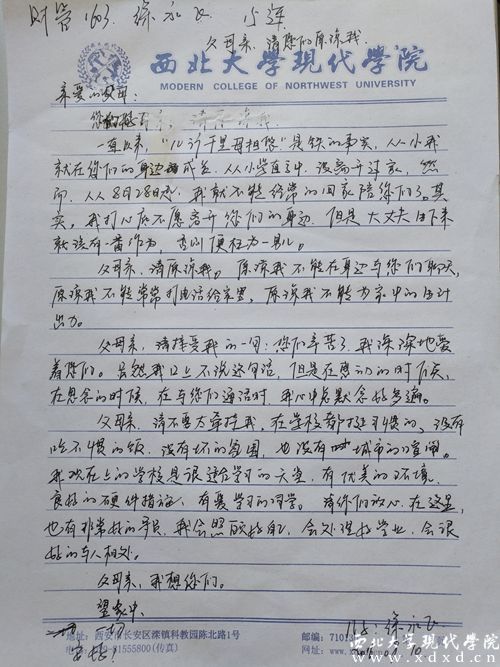 财管1603. 徐永飞 15班
父母亲，请你们原谅我。
西北大学现代学院
MODERN COLLEGE OF NORTHWEST UNIVERSITY
亲爱的父母：
一直以来，"儿行千里母担忧"是铁的事实，从小我
就在你们的身边成长，从小学直高中，没离开过家，然
而，从8月28日起，我就不能经常的回家陪你们了。其
实，我打心底不愿离开你们的身边，但是大丈夫
就该有一番作为，否则便枉为男儿。
父母亲，请原谅我。原谅我不能在身边与你们聊天，
原谅我不能常常打电话给家里，原谅我不能为家中的
出力。
父母亲，请接受我的一句：您们辛苦了，我深深地爱
着你们。虽然我口上不说这句话，但是在感动的时候，
在思念的时候，在与你们通话时，我心中总默念好多遍。
父母亲，请不要太牵挂我，在学校都挺习惯的，没有
吃不惯的饭，没有坏的氛围，也没有城市的喧闹。
我现在上的学校是很适合学习的天堂，有优美的环境，
良好的硬件措施，有爱学习的同学。请你们放心，在这里，
也有非常好的，我会照顾好自己，会处理好学业，会很
好的与人相处。
父母亲，我想你们。
望家中
一切
安好！
儿子：徐永飞
地址：西安市长安区滦镇科教园陈北路1号
邮编：7101
电话：029-81555800(传真)
网址：
西北大学现代学院
www.xdxd.cn